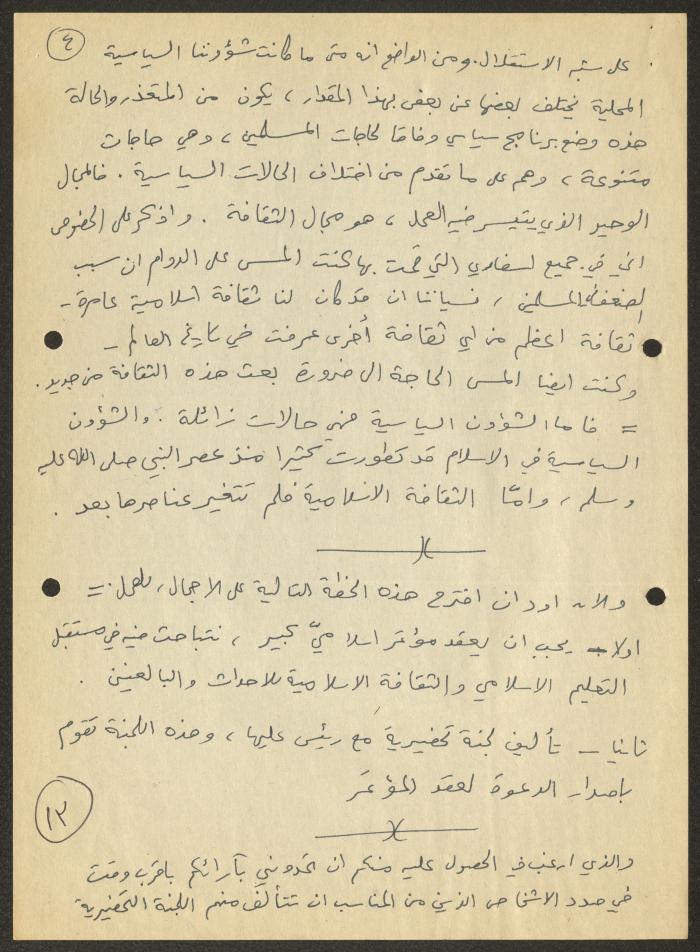 ٤
على شبه الاستقلال. ومن الواضح انه متى ما كانت شؤوننا السياسية
المحلية تختلف بعضها عن بعض بهذا المقدار، يكون من المتعذر والحالة
هذه وضع برنامج سياسي وفاقا لحاجات المسلمين، وهي حاجات
متنوعة، وهم على ما تقدم من اختلاف الحالات السياسية. فالمجال
الوحيد الذي يتيسر فيه العمل، هو مجال الثقافة. واذكر على الخصوص
اني في جميع اسفاري التي قمت بها كنت المس على الدوام ان سبب
ضعف المسلمين، نسياننا ان قد كان لنا ثقافة اسلامية عامرة -
ثقافة اعظم من اي ثقافة أخرى عرفت في تاريخ العالم -
وكنت ايضا المس الحاجة الى ضرورة بعث هذه الثقافة من جديد.
= فاما الشؤون السياسية فهي حالات زائلة. والشؤون
السياسية في الاسلام قد تطورت كثيرا منذ عصر النبي صلى الله عليه
وسلم، وامّا الثقافة الاسلامية فلم تتغير عناصرها بعد.
والان اود ان اقترح هذه الخطة التالية على الاجمال، للعمل: =
اولا - يجب ان يعقد مؤتمر اسلاميّ كبير، نتباحث فيه في مستقبل
التعليم الاسلامي والثقافة الاسلامية للاحداث والبالغين.
ثانيا - تأليف لجنة تحضيرية مع رئيس عليها، وهذه اللجنة تقوم
باصدار الدعوة لعقد المؤتمر
١٢
والذي ارغب في الحصول عليه منكم ان تمدوني بآرائكم باقرب وقت
في صدد الاشخاص الذين من المناسب ان تتألف منهم اللجنة التحضيرية